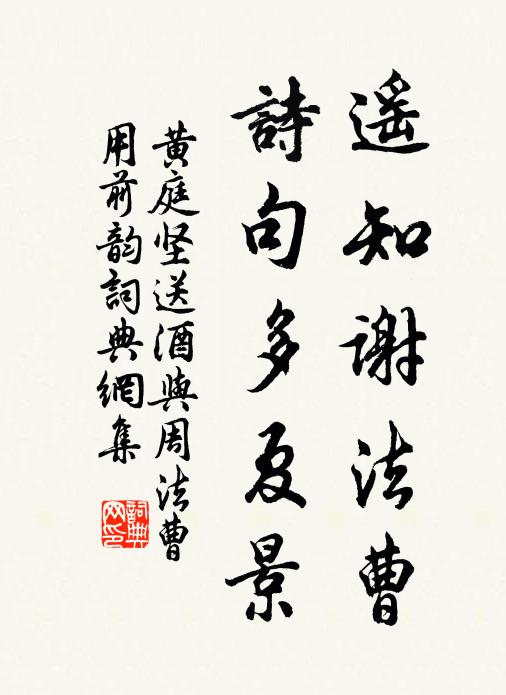 遥知谢法曹
詩句多夏景
黄庭坚送酒與周法曹
用前韵詞典網集
詞典
网印